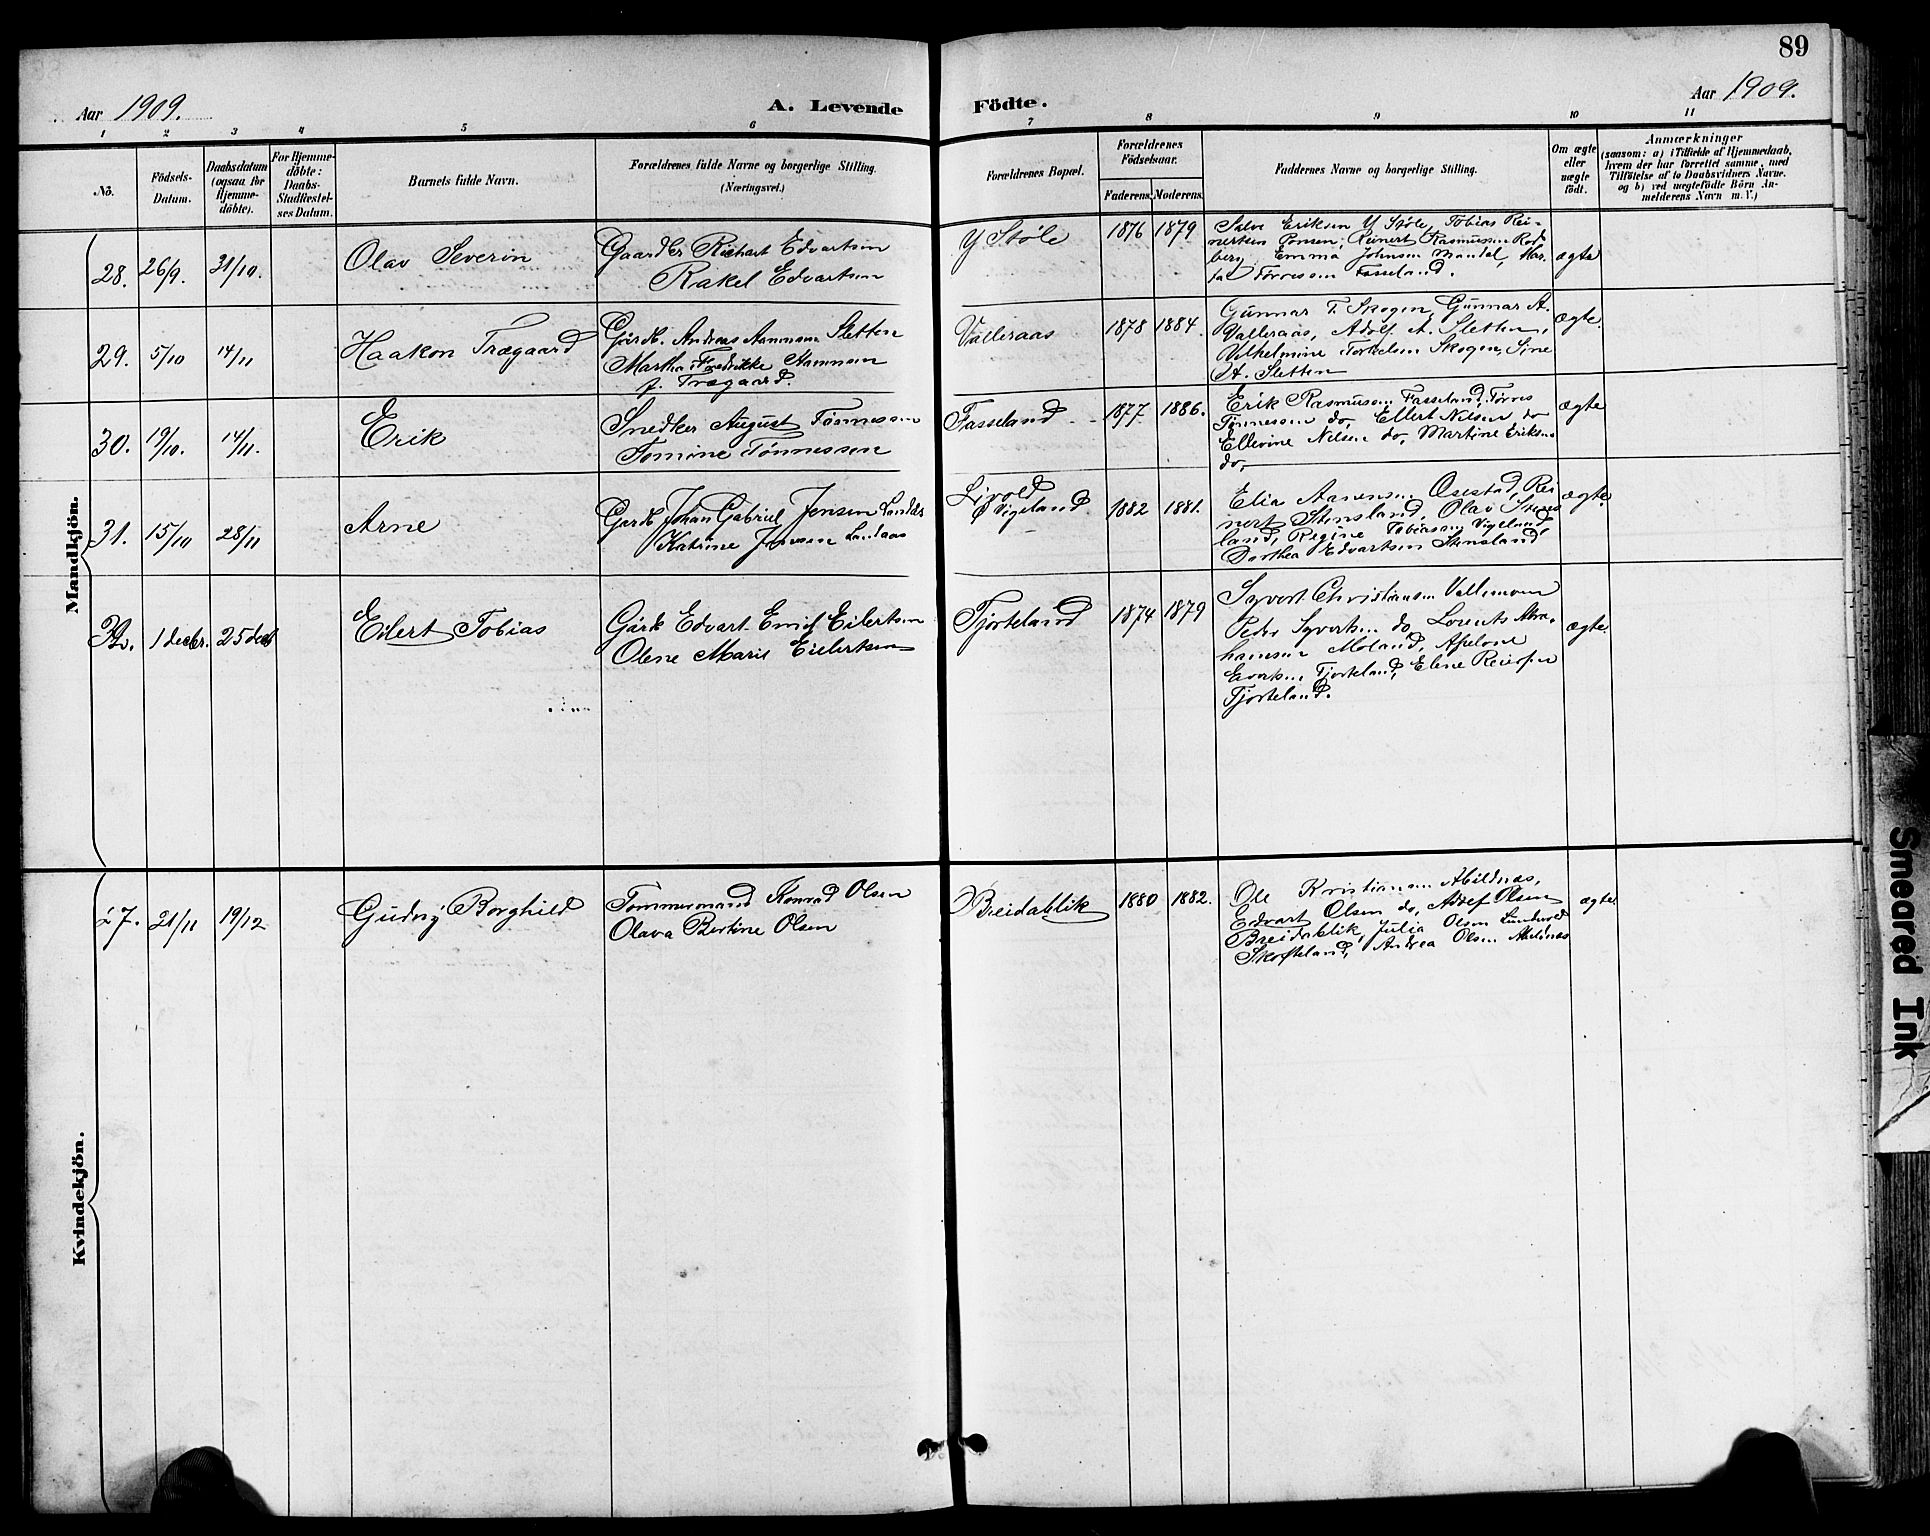 89
Aar 1909.
A. Levende Födte.
Aar 1909.
1 2 3 4 5 6 7 8 9 10 11
No.
Födsels-
Datum.
Daabsdatum
(ogsaa for
Hjemme-
döbte).
For Hjemme-
döbte:
Daabs-
Stadfæstel-
ses Datum.
Barnets fulde Navn.
Forældrenes fulde Navne og borgerlige Stilling.
(Næringsvei.)
Forældrenes Bopæl.
Forældrenes
Födselsaar.
Faderens. Moderens.
Faddernes Navne og borgerlige Stilling.
Om ægte
eller
uægte
födt.
Anmærkninger
(saasom: a) i Tilfælde af Hjemmedaab,
hvem der har forrettet samme, med
Tilföielse af to Daabsvidners Navne,
og b) ved uægtefödte Börn An-
melderens Navn m. V.)
Mandkjön.
28. 26/9. 31/10. Olav Severin
Gaardbr Richart Edvartsen
Rakel Edvartsen
Y Støle 1876 1879
Salve Eriksen Y Støle, Tobias Rei-
nertsen Ponsen, Reinert Rasmussen Rod-
berg, Emma Johnsen Mandal, Mar-
ta Tørressen Fasseland.
ægte
29. 5/10 14/11 Haakon Trægaard
Gårdb. Andreas Aanensen Sletten
Martha Fredrikke Aamnsen
f. Trægaard.
Valleraas 1878 1884.
Gunnar T. Skogen, Gunnar A.
Valleraas, Adolf A. Sletten,
Vilhelmine Torkelsen Skogen, Sine
A. Sletten
ægte.
30. 19/10. 14/11. Erik
Snedker August Tønnessen
Tomine Tønnessen
Fasseland 1877 1886.
Erik Rasmussen Fasseland, Tørres
Tønnessen do, Ellert Nilsen do
Ellevine Nilsen do, Martine Eriksen
do,
ægte
31. 15/10 28/11 Arne
Gardb. Johan Gabriel Jensen Landås
Katrine Jensen Landaas
Livold
Ø Vigeland 1882 1881.
Elia Aanensen Osestad, Rei-
nert Stensland, Olav Stens-
land, Regine Tobiasen Vigeland,
Dorthea Edvartsen Stensland
ægte
32. 1 decbr. 25 decb Eilert Tobias
Gårb Edvart Emil Eilertsen
Olene Marie Eilertsen
Fjorteland 1874 1879
Syvert Christiansen Vallemoen
Peder Syvertsen do, Lorents Abra-
hamsen Moland, Aselone
Evertsen, Fjorteland, Elene Reiersen
Fjorteland.
ægte
Kvindekjön.
27. 21/11 19/12 Gudny Borghild
Tømmermand Konrad Olsen
Olava Bertine Olsen
Breidablik 1880 1882.
Ole Kristiansen Abildnæs,
Edvart Olsen do, Adolf Olsen
Breidablik, Julia Olsen Lundevold
Skofteland, Andrea Olsen Abildnæs
ægte
Smeared Ink